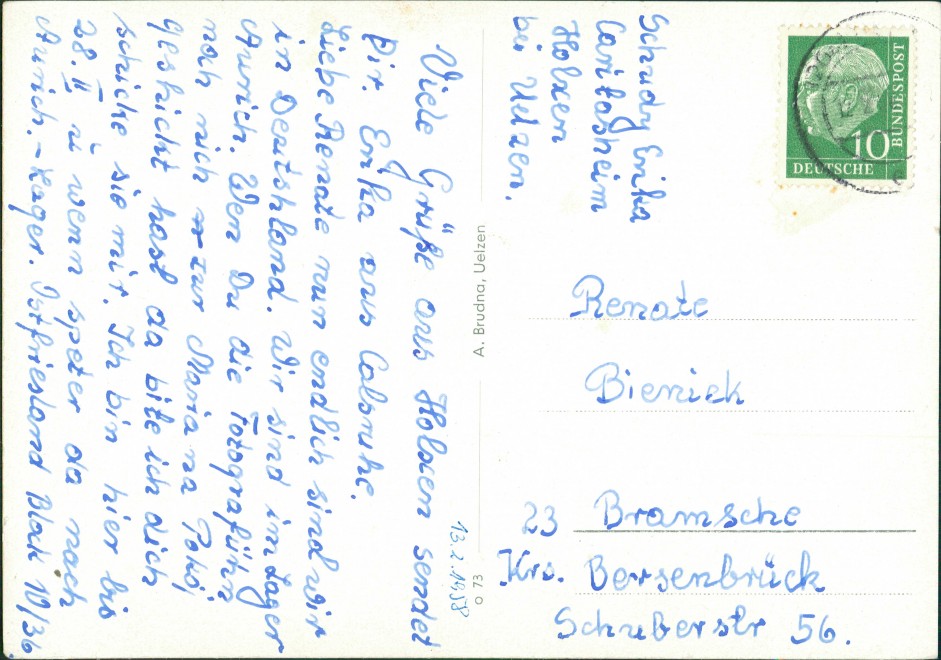 Viele Grüße aus Holxen sendet
Dir Erika aus Calsruhe.
Liebe Renate nun endlich sind wir
in Deutshland. Wir sind im Lager
Aurich. Wen Du die Fotografühn
noch nich zur Maria na Pokój
geshickt hast da bite ich dich
schicke sie mir. Ich bin hier bis
28. II u wenn speter da nach
Aurich. - Lager. Ostfriesland Block 10/36
13.2.1958
A. Brudna, Uelzen
O 73
Schudy Erika
Caritasheim
Holxen
bei Uelzen.
10
DEUTSCHE
BUNDESPOST
Renate
Bieniek
23 Bramsche
Krs. Bersenbrück
Schuberstr 56.